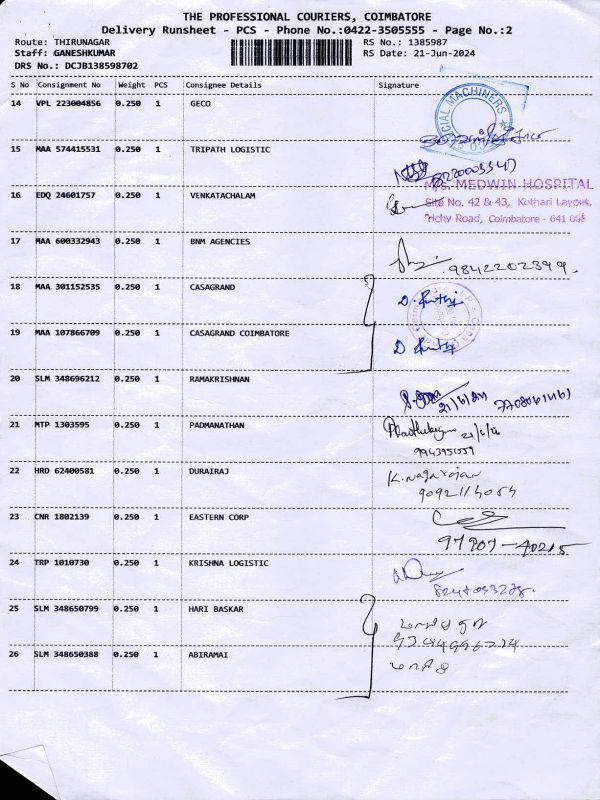 THE PROFESSIONAL COURIERS, COIMBATORE
Delivery Runsheet - PCS - Phone No.:0422-3505555 - Page No.:2
Route: THIRUNAGAR RS No.: 1385987
Staff: GANESHKUMAR RS Date: 21-Jun-2024
DRS No.: DCJB138598702
S No Consignment No Weight PCS Consignee Details Signature
14 VPL 223004856 0.250 1 GECO
MACHINERS
15 MAA 574415531 0.250 1 TRIPATH LOGISTIC
M/s. MEDWIN HOSPITAL
16 EDQ 24601757 0.250 1 VENKATACHALAM
Site No. 42 & 43, Kothari Layout,
Trichy Road, Coimbatore - 641
17 MAA 600332943 0.250 1 BNM AGENCIES
9842202399.
18 MAA 301152535 0.250 1 CASAGRAND
19 MAA 107866709 0.250 1 CASAGRAND COIMBATORE
20 SLM 348696212 0.250 1 RAMAKRISHNAN
21/6/24
21 MTP 1303595 0.250 1 PADMANATHAN
22 HRD 62400581 0.250 1 DURAIRAJ
K. nagarajan
23 CNR 1802139 0.250 1 EASTERN CORP
97907-40215
24 TRP 1010730 0.250 1 KRISHNA LOGISTIC
25 SLM 348650799 0.250 1 HARI BASKAR
26 SLM 348650388 0.250 1 ABIRAMAI